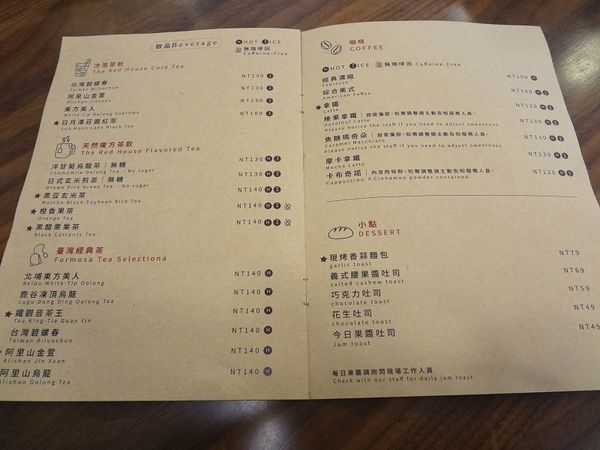 飲品Beverage
H HOT I ICE 無咖啡因 Caffeine Free
冷泡葉飲
The Red House Cold Tea
台灣碧螺春 NT130 I
Taiwan Biluochun
阿里山金萱 NT130 I
Alishan Jinxuan
東方美人 NT130 I
White-Tip Oolong Supreme
★日月潭莊園紅茶 NT100 I
Sun Moon Lake Black Tea
天然複方茶飲
The Red House Flavored Tea
洋甘菊烏龍茶|無糖 NT130 H I
Chamomile Oolong Tea / No sugar
日式玄米煎茶|無糖 NT130 H I
Brown Rice Green Tea / No sugar
★黑豆玄米茶 NT140 H I
Matcha Black Soybean Rice Tea
★橙香果茶 NT140 H I
Orange Tea
★黑醋栗果茶 NT140 H I
Black Currants Tea
臺灣經典茶
Formosa Tea Selectiona
北埔東方美人 NT140 H
Beiau White-Tip Oolong
鹿谷凍頂烏龍 NT140 H
Lugu Dong Ding Oolong Tea
★鐵觀音茶王 NT140 H
Tea King-Tie Guan Yin
台灣碧螺春 NT140 H
Taiwan Biluochun
阿里山金萱 NT140 H
Alishan Jin Xuan
阿里山烏龍 NT140 H
Alishan Oolong Tea
咖啡
COFFEE
H HOT I ICE 無咖啡因 Caffeine Free
經典濃縮 NT100 H
Espresso
綜合美式
American Coffee
★拿鐵
Latte
榛果拿鐵|甜度偏甜,如需調整請主動告知服務人員。
Hazelnut Latte
Please notice the staff if you need to adjust sweetness.
焦糖瑪奇朵|甜度偏甜,如需調整請主動告知服務人員。
Caramel Macchiato
Please notice the staff if you need to adjust sweetness.
摩卡拿鐵 NT130 H I
Mocha Latte
卡布奇諾|內含肉桂粉,如需調整請主動告知服務人員。 NT120 H I
Cappuccino / Cinnamon powder contained.
小點
DESSERT
★現烤香蒜麵包 NT79
garlic toast
義式腰果醬吐司 NT69
salted cashew toast
巧克力吐司 NT59
chocolate toast
花生吐司 NT49
chocolate toast
今日果醬吐司 NT49
Jam toast
每日果醬請詢問現場工作人員
Check with our staff for daily jam toast